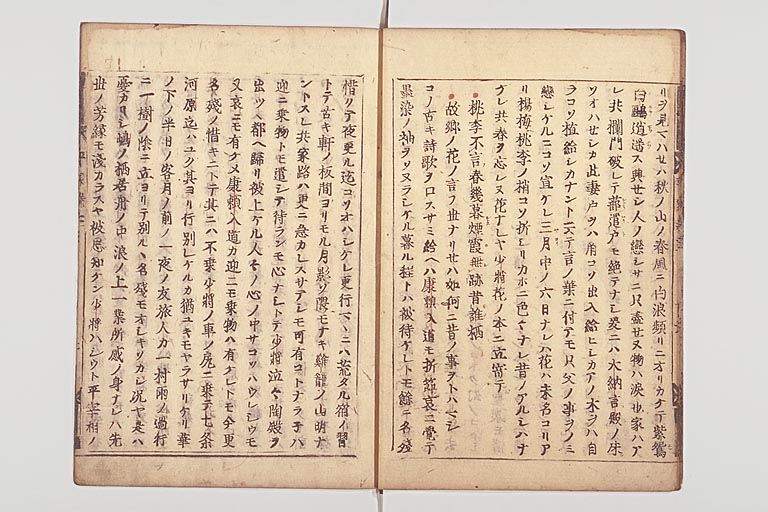 リヲ見マハセハ秋ノ山ノ春風ニ白浪頻リニオリカケテ紫鴛
白鷗逍遙ス興セシ人ノ戀シサニ只盡セヌ物ハ涙也家ハア
レ共欄門破レテ蔀遣戸モ絶テナシ爰ニハ大納言殿ノ
ハセシカ此妻戸ヲハ角コソ出入給ヒシカアノ木ヲハ自
ラコソ植給シカナント云テ言ノ葉ニ付テモ只父ノ事ヲノミ
戀シケルニコソ宜ケレ三月中ノ六日ナレハ花ハ未名コリア
リ楊梅桃李ノ梢コソ折シリカホニ色々ナレ昔ノアルシハナ
ケレ共春ヲ忘レヌ花ナレヤ少將花ノ本ニ立寄テ
桃李不言春幾暮煙霞無跡昔誰栖
故郷ノ花ノ言フ世ナリセハ如何ニ昔ノ事ヲトハマシ
コノ古キ詩歌ヲ口スサミ給ヘハ康頼入道モ折節哀ニ覺テ
墨染ノ袖ヲソヌラシケル暮ル程トハ被待ケレトモ餘テ名殘
惜リテ夜更ル迄コソオハシケレ更行マヽニハ荒タル宿ノ習
トテ古キ軒ノ板間ヨリモル月影ソ隈モナキ鷄籠ノ山明ナ
ントスレ共家路ハ更ニ急カレスサテシモ可有コトナラネハ
迎ニ乗物トモ遣シテ待ランモ心ナシトテ少將泣々陶殿ヲ
出ツヽ都ヘ歸リ被上ケル人々ノ心ノ中サコソハウレシウモ
又哀ニモ有ケメ康頼入道カ迎ニモ乗物ハ有ケレトモ今更
名殘ノ惜キニトテ其ニハ不乗少將ノ車ノ尻ニ乗テ七条
河原迄ハユク其ヨリ行別レケルカ猶ユキモヤラサリケリ華
ノ下ノ半日ノ客月ノ前ノ一夜ノ友旅人カ一村雨ノ過行
ニ一樹ノ陰ニ立ヨリテ別ルヽ名殘モオシキソカシ況ヤ是ハ
憂カリシ嶋ノ栖居舟ノ中浪ノ上一業所感ノ身ナレハ先
世ノ芳縁モ淺カラスヤ被思知ケン少將ハシウト平宰相ノ